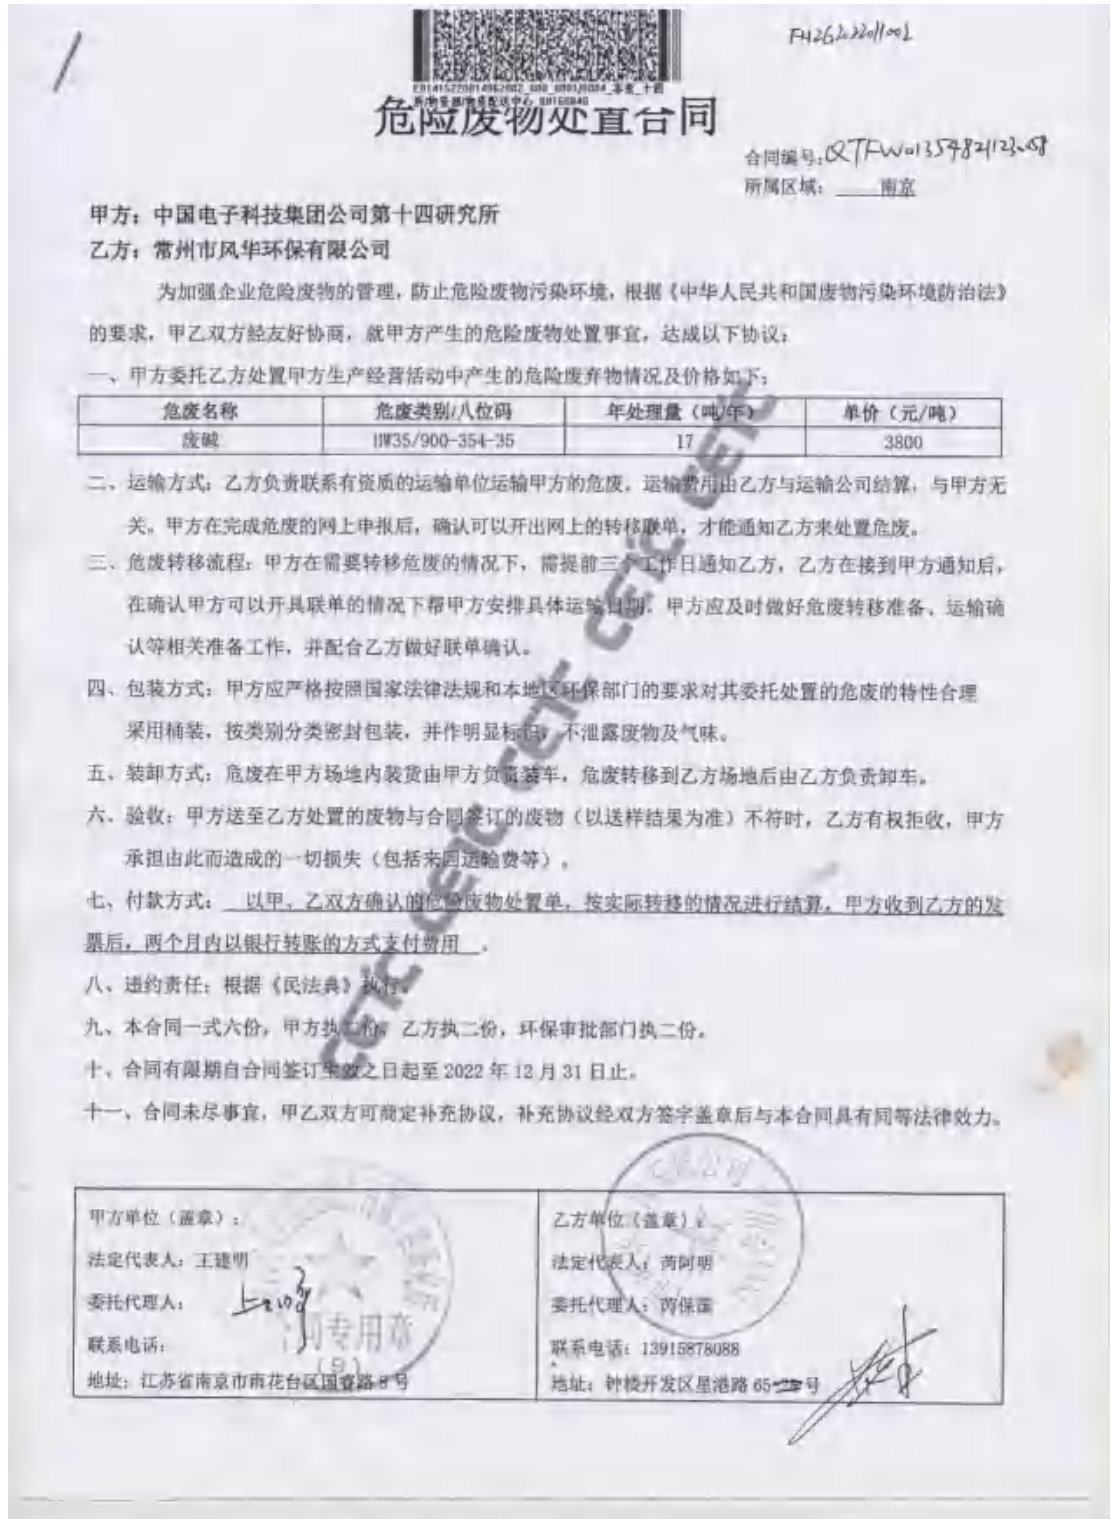 FHZG2022011002
危险废物处置合同
合同编号:QTFW01354821123058
所属区域: 南京
甲方:中国电子科技集团公司第十四研究所
乙方:常州市风华环保有限公司
为加强企业危险废物的管理,防止危险废物污染环境,根据《中华人民共和国废物污染环境防治法》
的要求,甲乙双方经友好协商,就甲方产生的危险废物处置事宜,达成以下协议:
一、甲方委托乙方处置甲方生产经营活动中产生的危险废弃物情况及价格如下:
危废名称 危废类别/八位码 年处理量(吨/年) 单价(元/吨)
废碱 HW35/900-354-35 17 3800
二、运输方式:乙方负责联系有资质的运输单位运输甲方的危废。运输费用由乙方与运输公司结算,与甲方无
关。甲方在完成危废的网上申报后,确认可以开出网上的转移联单,才能通知乙方来处置危废。
三、危废转移流程:甲方在需要转移危废的情况下,需提前三个工作日通知乙方,乙方在接到甲方通知后,
在确认甲方可以开具联单的情况下帮甲方安排具体运输日期。甲方应及时做好危废转移准备、运输确
认等相关准备工作,并配合乙方做好联单确认。
四、包装方式:甲方应严格按照国家法律法规和本地区环保部门的要求对其委托处置的危废的特性合理
采用桶装,按类别分类密封包装,并作明显标识,不泄露废物及气味。
五、装卸方式:危废在甲方场地内装货由甲方负责装车,危废转移到乙方场地后由乙方负责卸车。
六、验收:甲方送至乙方处置的废物与合同签订的废物(以送样结果为准)不符时,乙方有权拒收,甲方
承担由此而造成的一切损失(包括来回运输费等)。
七、付款方式: 以甲、乙双方确认的危险废物处置单,按实际转移的情况进行结算,甲方收到乙方的发
票后,两个月内以银行转账的方式支付费用 。
八、违约责任:根据《民法典》执行。
九、本合同一式六份,甲方执二份,乙方执二份,环保审批部门执二份。
十、合同有限期自合同签订生效之日起至 2022 年 12 月 31 日止。
十一、合同未尽事宜,甲乙双方可商定补充协议,补充协议经双方签字盖章后与本合同具有同等法律效力。
CETC CETC CETC CETC CETC
甲方单位(盖章):
法定代表人:王建明
委托代理人:
联系电话:
地址:江苏省南京市雨花台区国睿路 8 号
合同专用章
(9)
乙方单位(盖章):
法定代表人:芮阿明
委托代理人:芮保国
联系电话:13915878088
地址:钟楼开发区星港路 65- 号